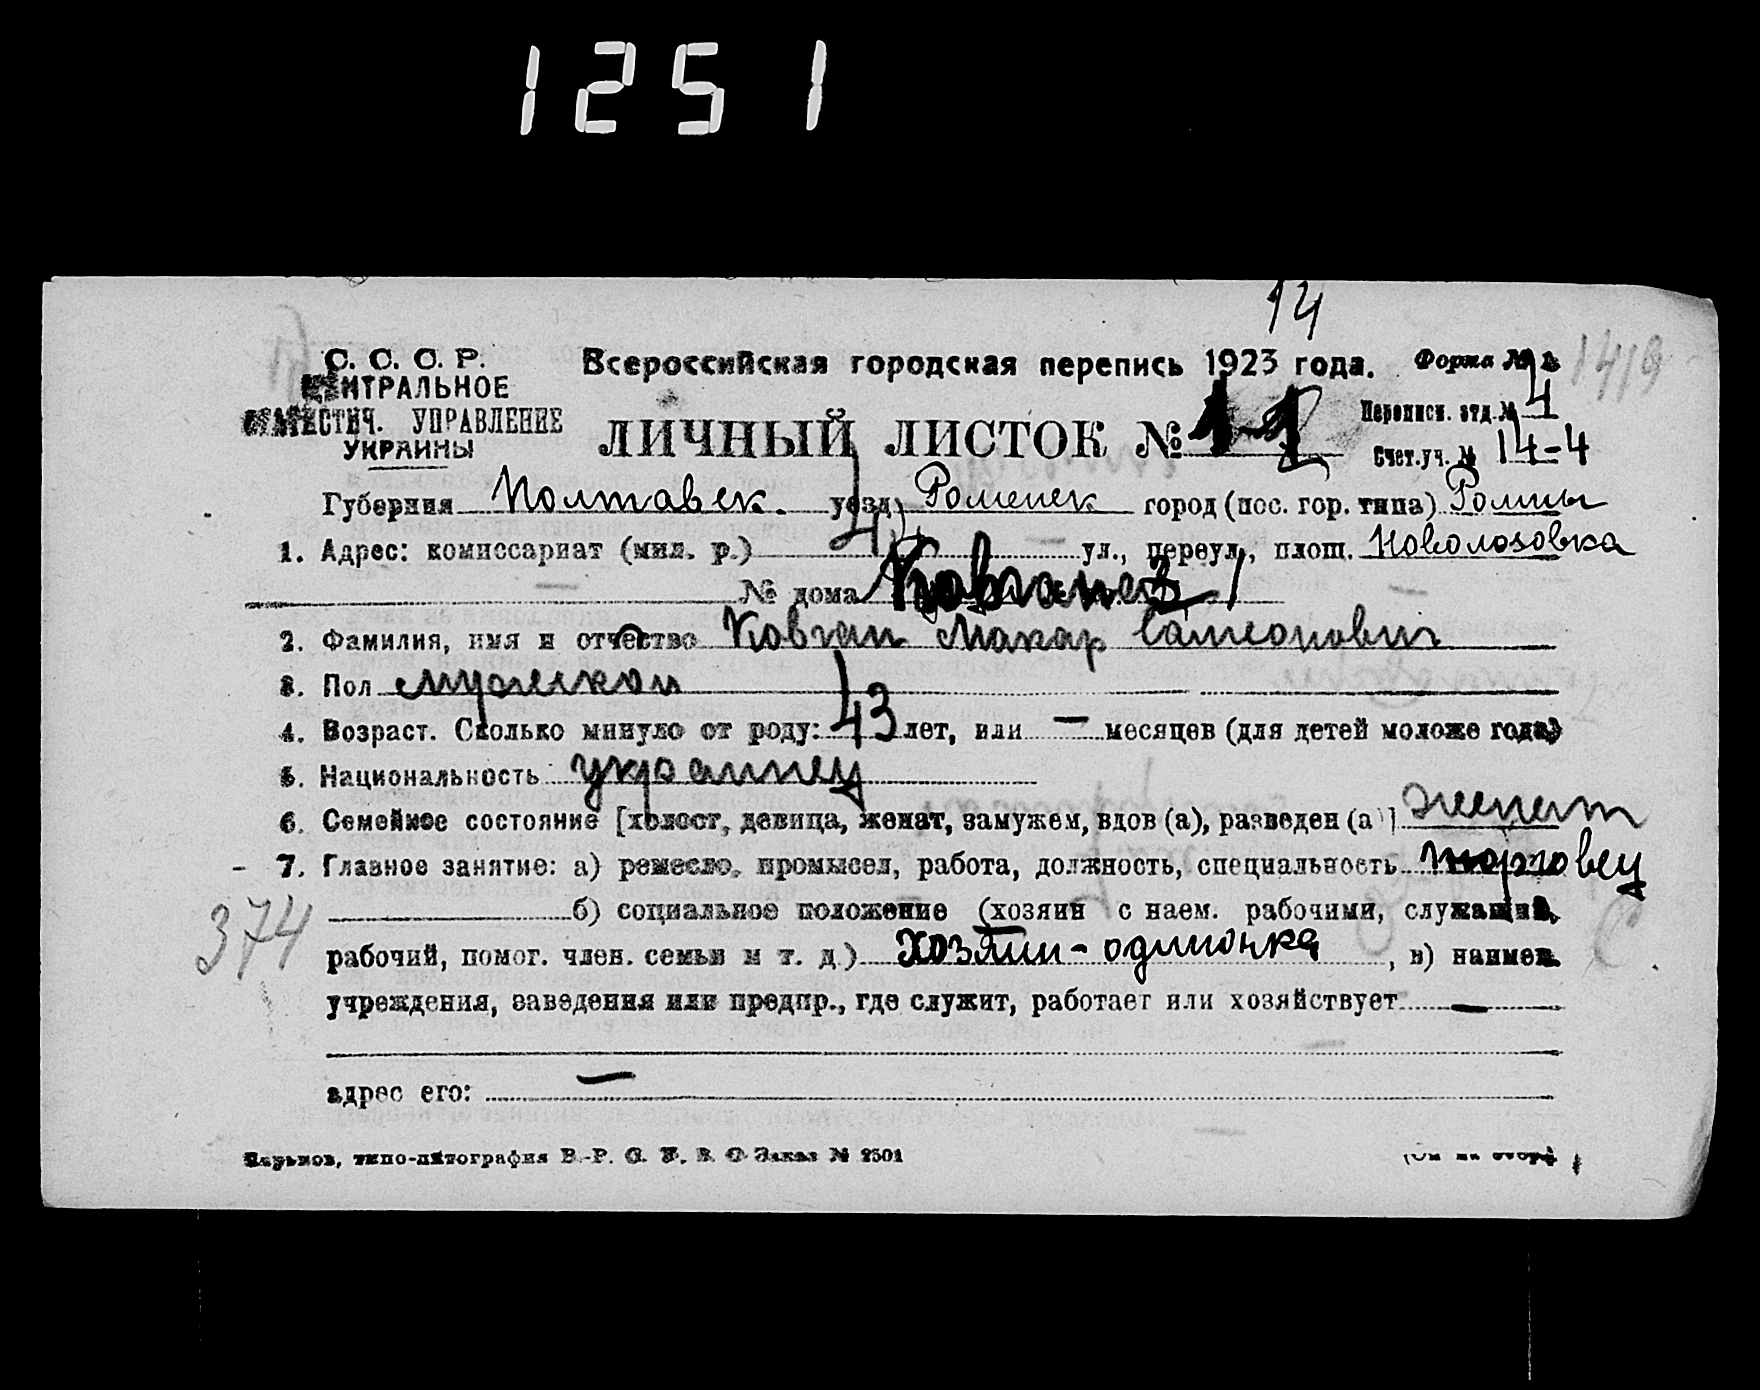 1251
14
С. С. С. Р.
ЦЕНТРАЛЬНОЕ
СТАТИСТИЧ. УПРАВЛЕНИЕ
УКРАИНЫ
Всероссийская городская перепись 1923 года. Форма №
1419
ЛИЧНЫЙ ЛИСТОК №
Переписн. отд. № 4
Счет.уч. № 14-4
Губерния Полтавск. уезд Роменск город (пос. гор. типа) Ромны
1. Адрес: комиссариат (мил. р.) 4 ул., переул., площ.
№ дома
2. Фамилия, имя и отчество Ковган Макар Самсонович
3. Пол мужской
4. Возраст. Сколько минуло от роду: 43 лет, или — месяцев (для детей моложе года)
5. Национальность украинец
6. Семейное состояние [холост, девица, женат, замужем, вдов (а), разведен (а)] женат
- 7. Главное занятие: а) ремесло, промысел, работа, должность, специальность торговец
374
б) социальное положение (хозяин с наем. рабочими, служащий,
рабочий, помог. член. семьи и т. д.) хозяин-одиночка, в) наимен.
учреждения, заведения или предпр., где служит, работает или хозяйствует —
адрес его: —
Харьков, типо-литография В.-Р. С. Заказ № 2501